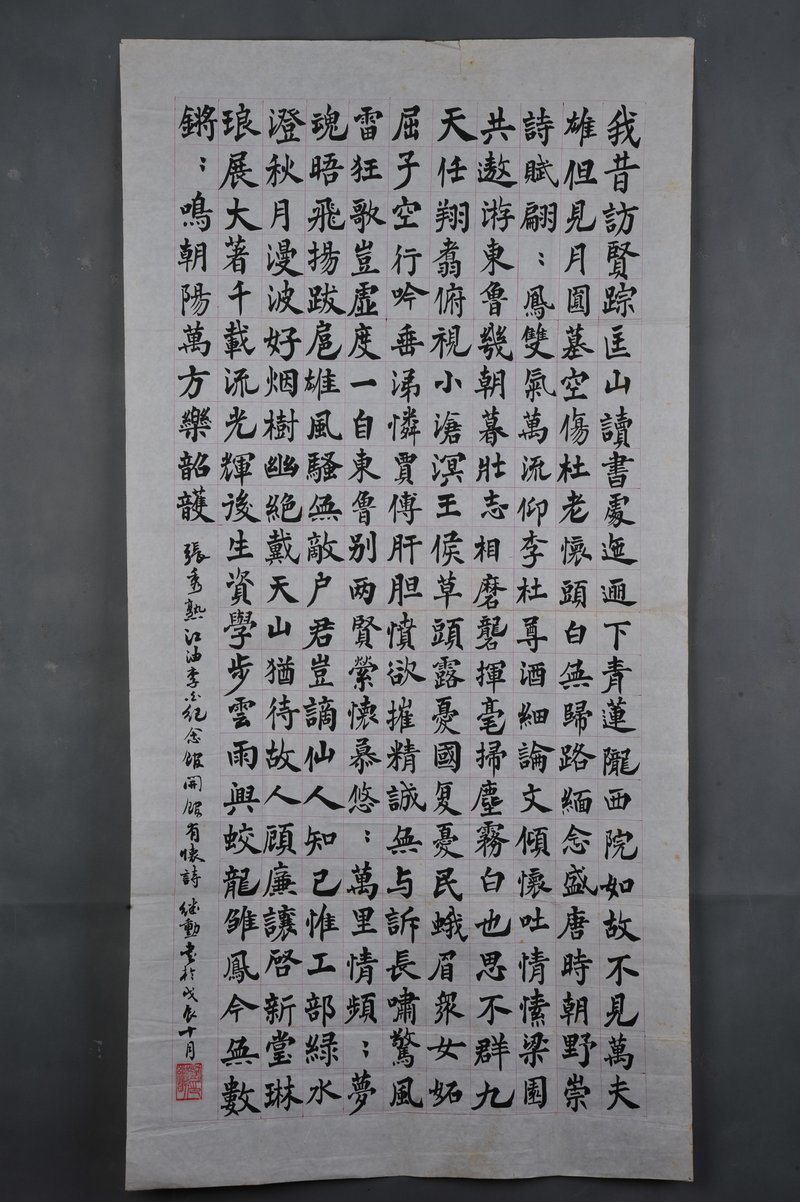 我昔訪賢踪匡山讀書處迤邐下青蓮隴西院如故不見萬夫
雄但見月圓墓空傷杜老懷頭白無歸路緬念盛唐時朝野崇
詩賦翩：鳳雙氣萬流仰李杜尊酒細論文傾懷吐情愫梁園
共遨游東魯幾朝暮壯志相磨礱揮毫掃塵霧白也思不群九
天任翔翥俯視小滄溟王侯草頭露憂國复憂民蛾眉衆女妬
屈子空行吟垂涕憐賈傅肝胆憤欲摧精誠無与訴長嘯驚風
雷狂歌豈虛度一自東魯别两賢縈懷慕悠：萬里情頻：夢
魂晤飛揚跋扈雄風騷無敵户君豈謫仙人知己惟工部綠水
澄秋月漫波好烟樹幽絕戴天山猶待故人顧廉讓啓新堂琳
琅展大著千載流光輝後生資學步雲雨興蛟龍雏鳳今無數
鏘：鳴朝陽萬方樂韶頀
張秀熟江油李白纪念館開館有懷詩 继勳書於戊辰十月